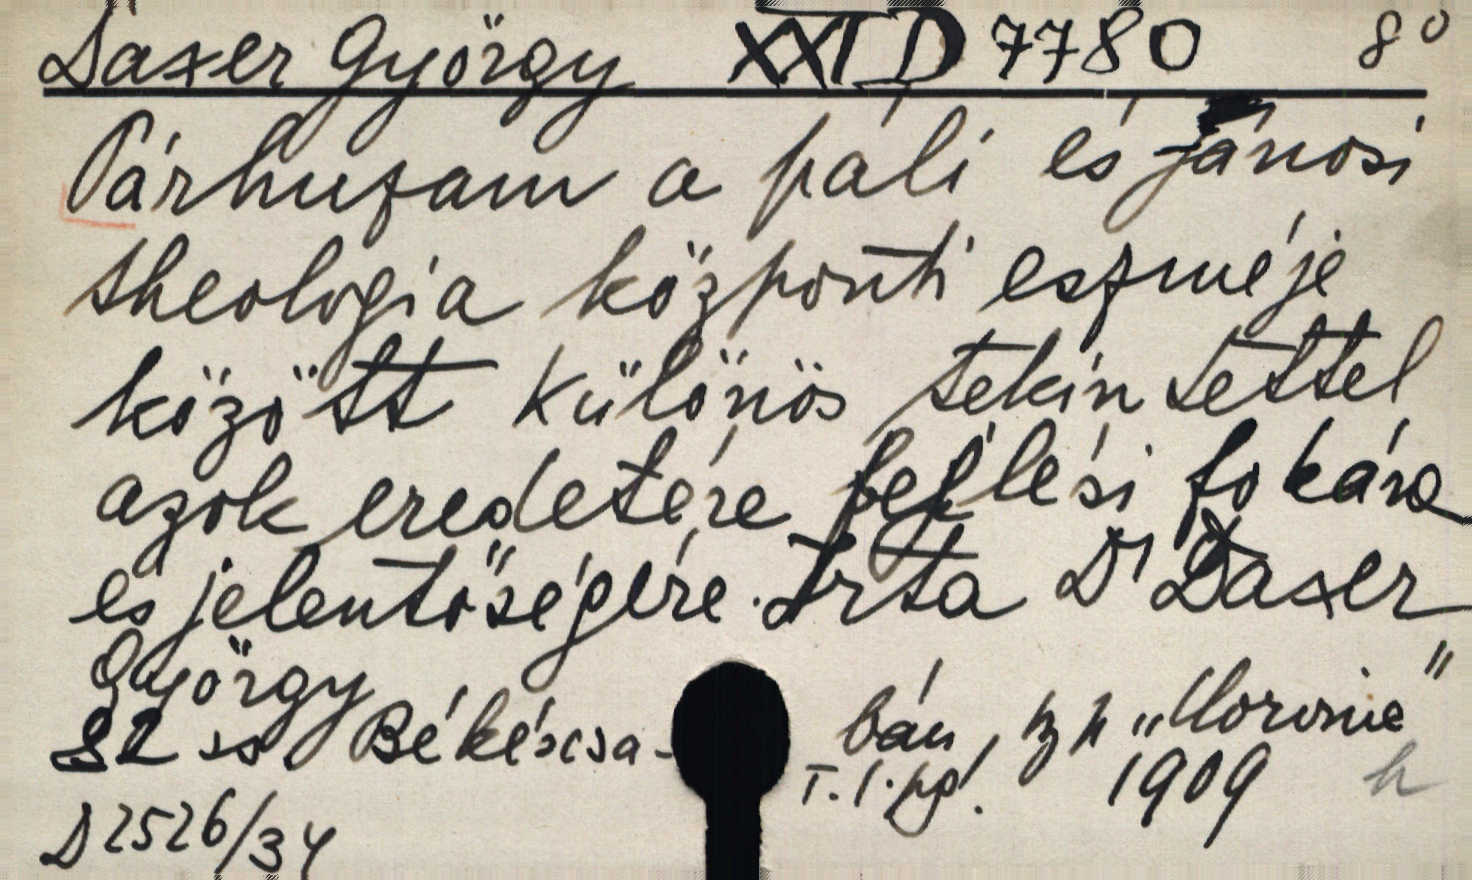 Daxer György XXI D 7780 8°
Párhuzam a páli és jánosi
theologia központi eszméje
között különös tekintettel
azok eredetére fejlési fokára
és jelentőségére. Irta Dr Daxer
György
82 ss Békéscsa- bán, „Corvina"
T. l. pgf. 1909 h
D 2526/34